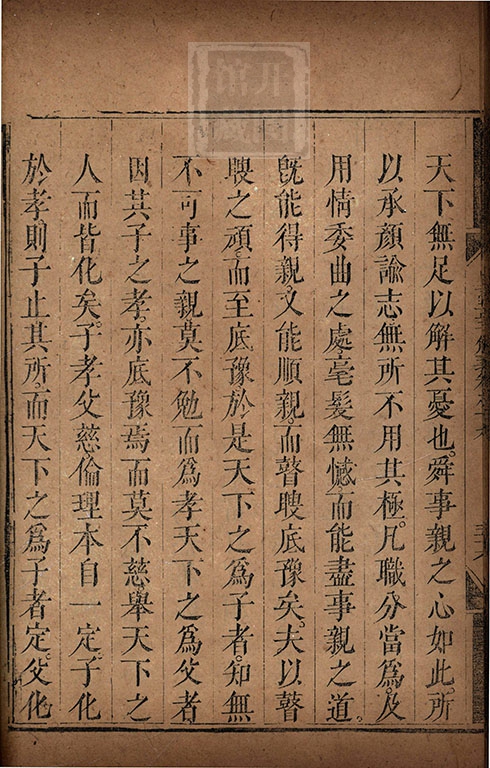 天下無足以解其憂也。舜事親之心如此。所
以承顏諭志無所不用其極。凡職分當爲。及
用情委曲之處毫髮無憾。而能盡事親之道。
旣能得親。又能順親。而瞽瞍底豫矣。夫以瞽
瞍之頑。而至底豫。於是天下之爲子者。知無
不可事之親。莫不勉而爲孝天下之爲父者
因其子之孝。亦底豫焉。而莫不慈舉天下之
人而皆化矣。子孝父慈倫理本自一定。子化
於孝則子止其所。而天下之爲子者定。父化